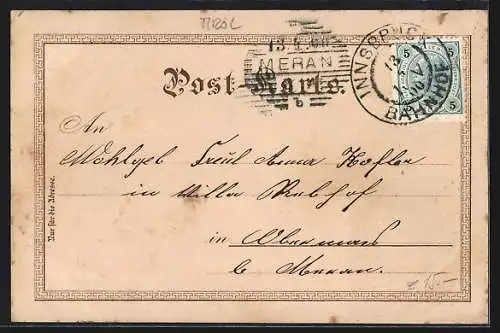 TIROL
13.4.00
MERAN
b
INNSBRUCK
13 4 00
BAHNHOF
5 5
5
Post-Karte.
An
Wohlgeb Freul Anna Hofler
in Villa Rebhof
in Obermais
b Meran.
Nur für die Adresse.
15.-